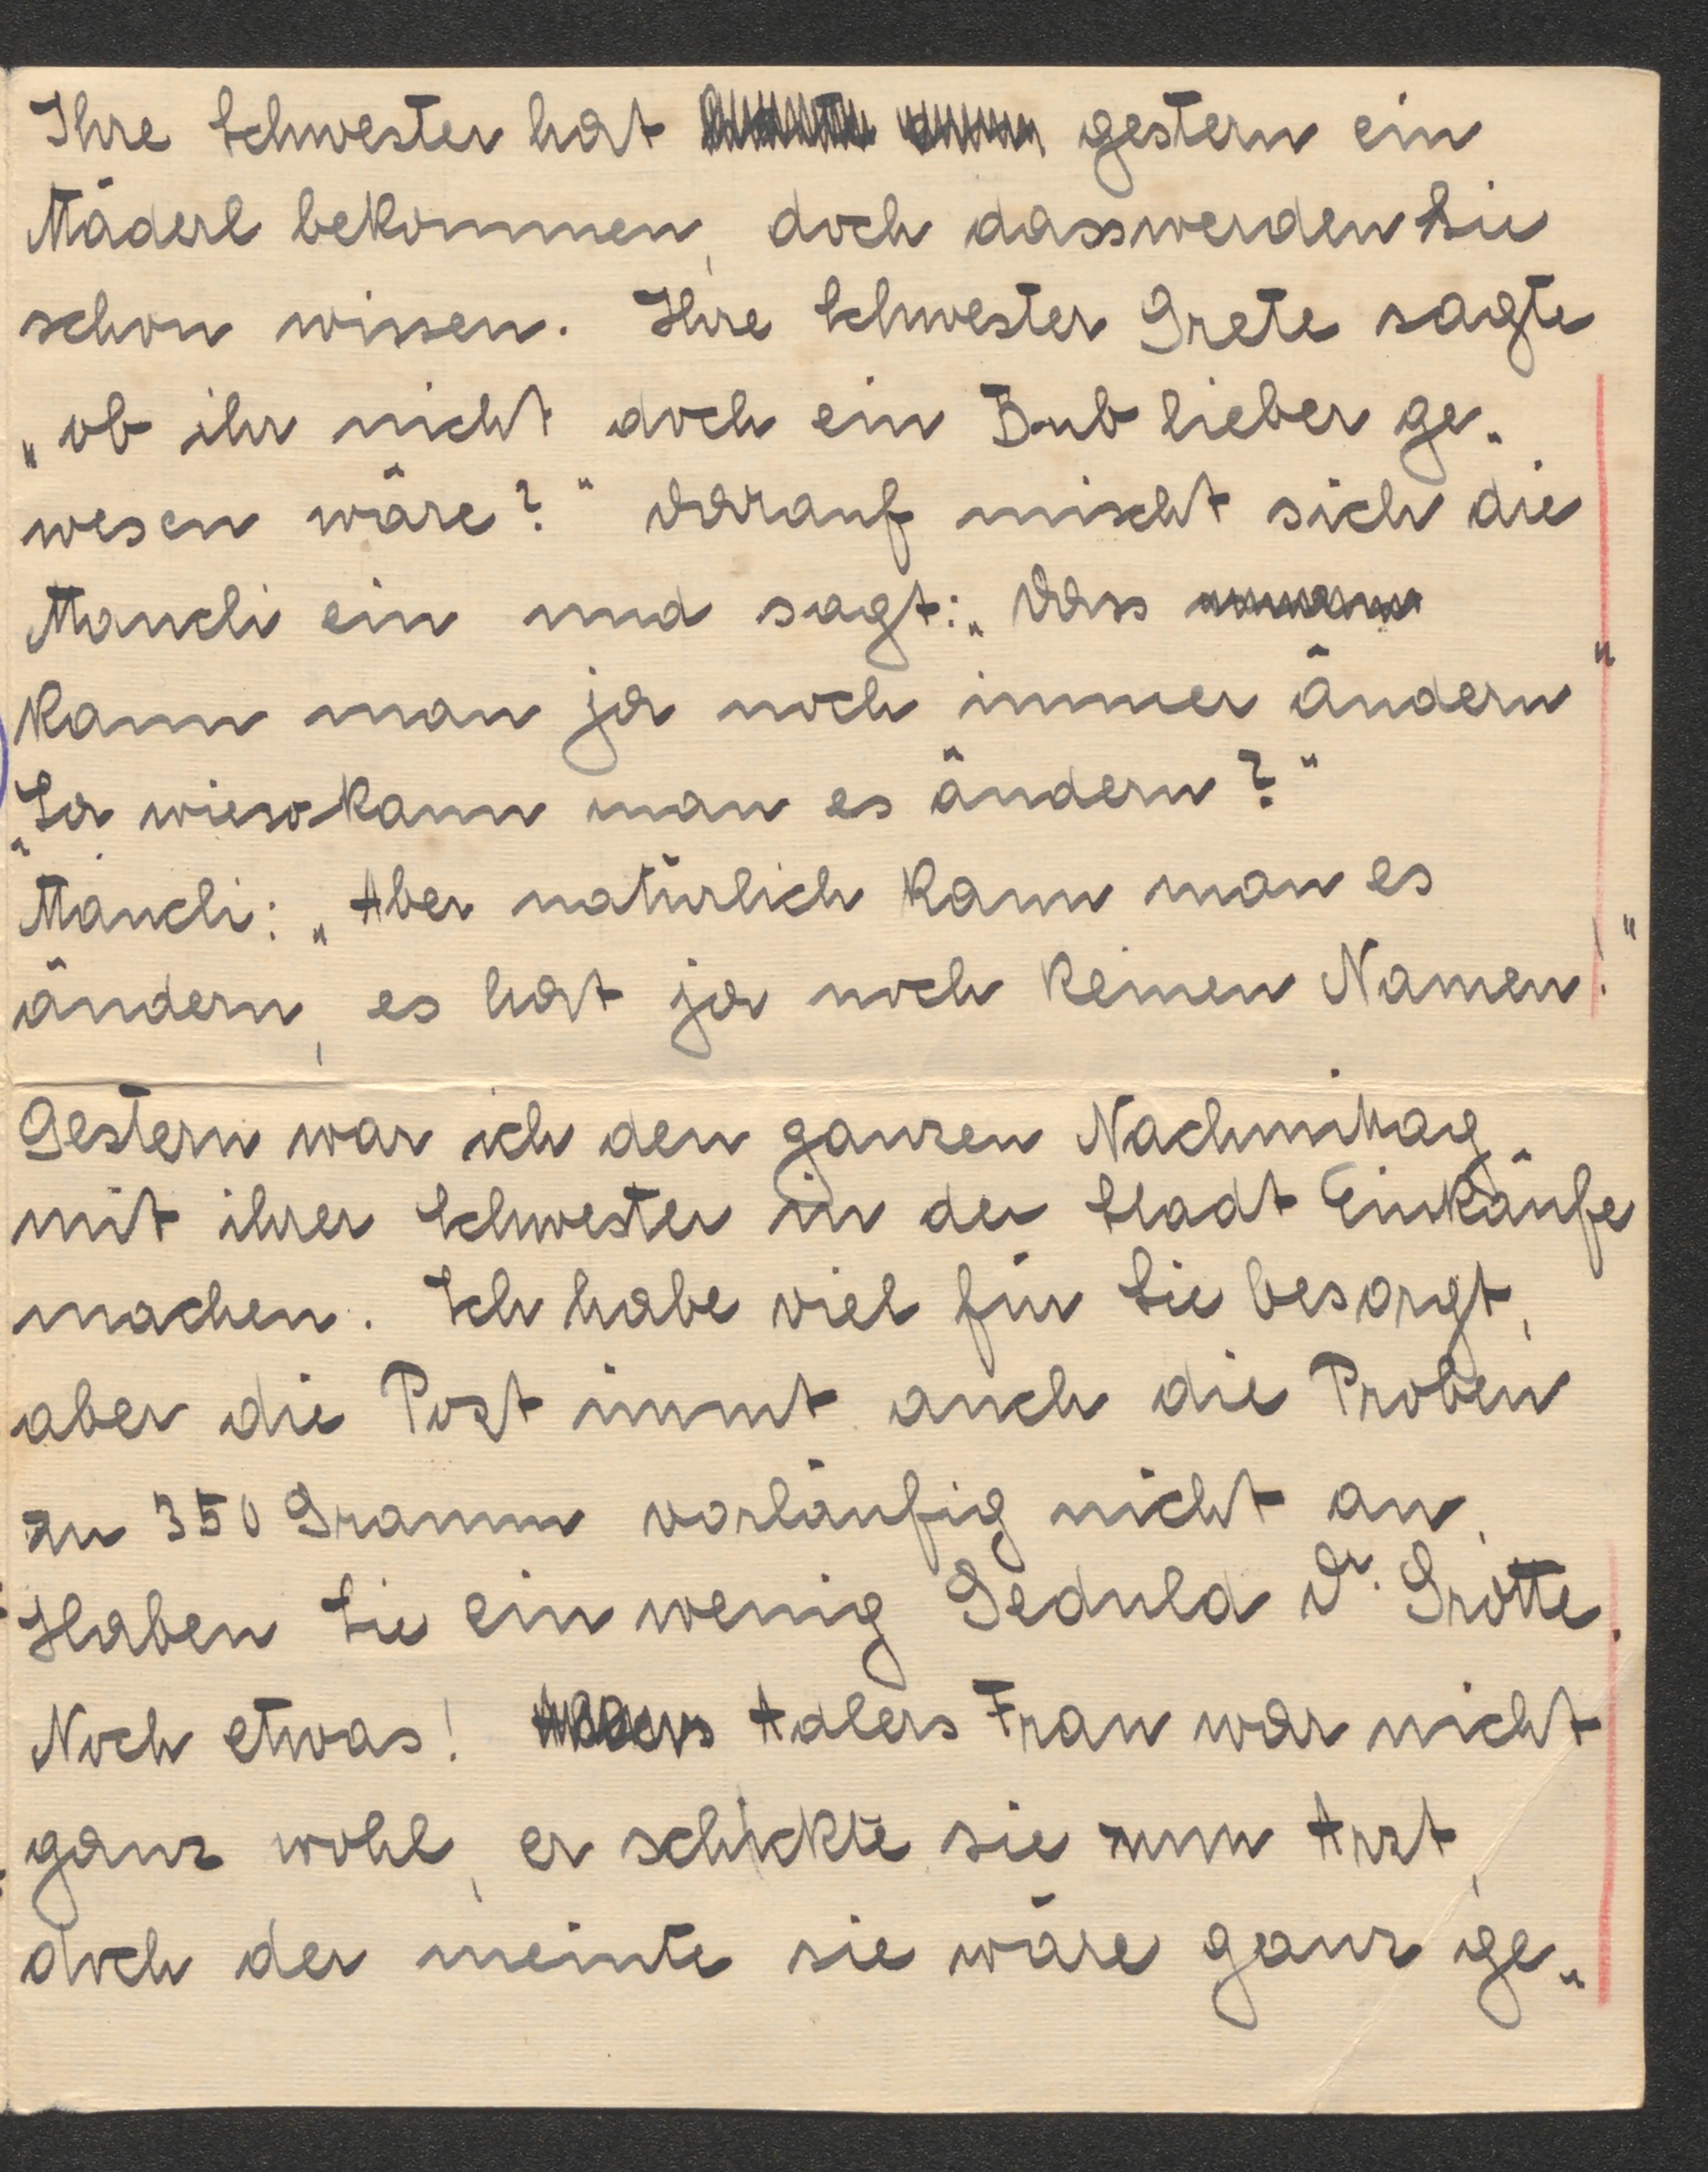 Ihre Schwester hat gestern ein
Mäderl bekommen, doch dass werden Sie
schon wissen. Ihre Schwester Grete sagte
„ob ihr nicht doch ein Bub lieber ge„
wesen wäre?“ Darauf mischt sich die
Maucli ein und sagt: „Dass
kann man ja noch immer ändern“
„Ja wieso kann man es ändern?“
Maucli: „Aber natürlich kann man es
ändern, es hat ja noch keinen Namen!“
Gestern war ich den ganzen Nachmittag
mit ihrer Schwester in der Stadt Einkäufe
machen. Ich habe viel für Sie besorgt,
aber die Post immt auch die Proben
zu 350 Gramm vorläufig nicht an.
Haben Sie ein wenig Geduld Dr. Grötte.
Noch etwas! Adlers Frau war nicht
ganz wohl, er schickte sie zum Arzt,
doch der meinte sie wäre ganz ge„